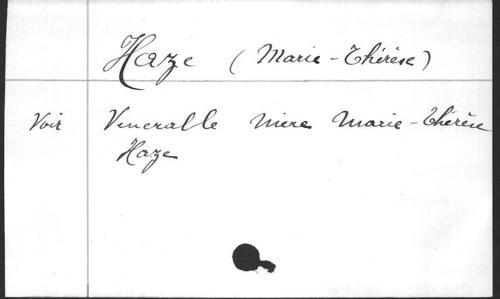 Haze (Marie-Thérèse)
Voir Vénérable Mère Marie-Thérèse
Haze